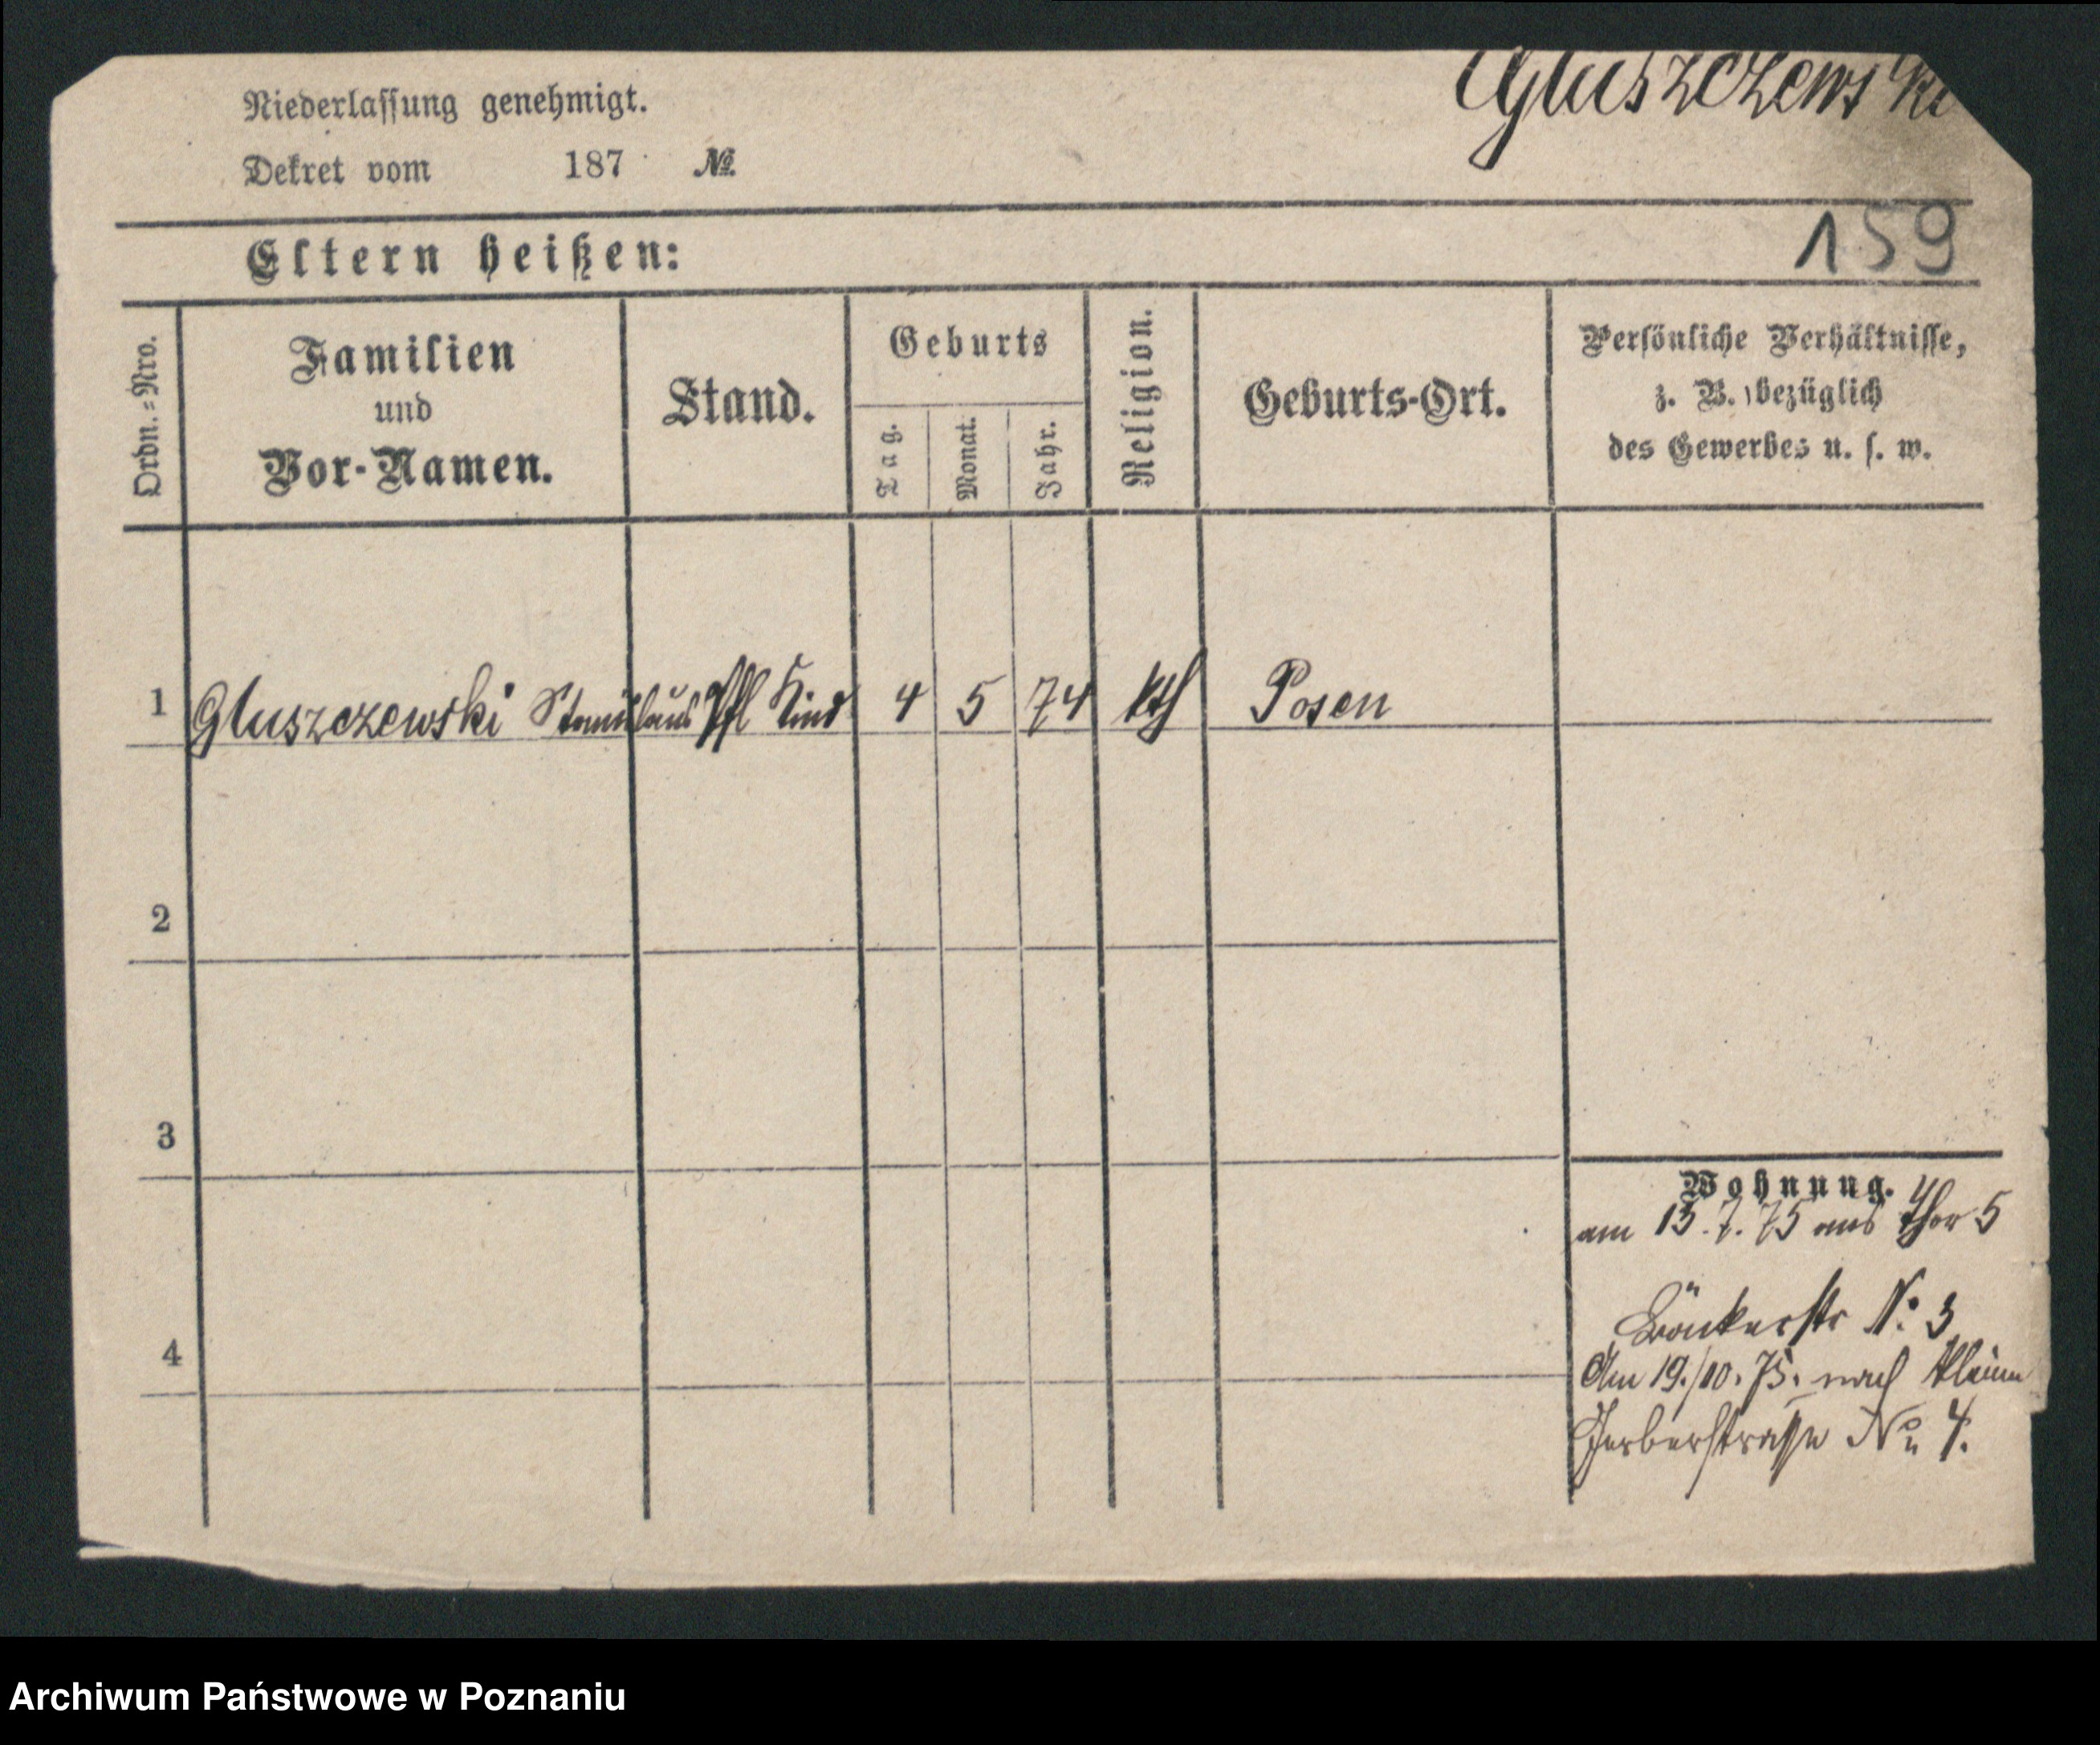 Gluszczewski
Niederlassung genehmigt.
Dekret vom 187 №
159
Eltern heißen:
Ordn.=Nro.
Familien
und
Vor-Namen.
Stand.
Geburts
Tag.
Monat.
Jahr.
Religion.
Geburts-Ort.
Persönliche Verhältnisse,
z. B. bezüglich
des Gewerbes u. s. w.
1 Gluszczewski Stanislaus Pfl Kind 4 5 74 kth Posen
2
3
4
Wohnung.
am 13.7.75 aus Thor 5
Bäckerstr N: 3
Am 19./10. 75. nach Kleine
Gerberstrasse No 4.
Archiwum Państwowe w Poznaniu